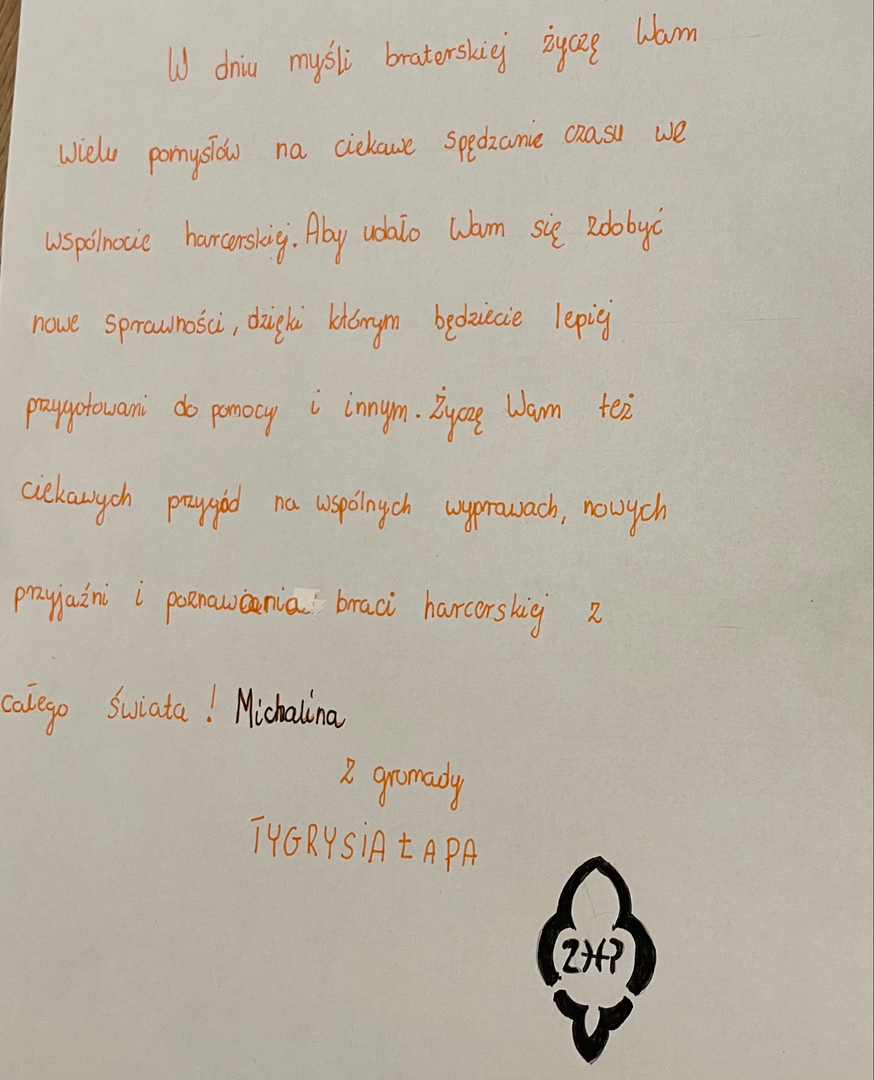 W dniu myśli braterskiej życzę Wam
wielu pomysłów na ciekawe spędzanie czasu we
wspólnocie harcerskiej. Aby udało Wam się zdobyć
nowe sprawności, dzięki którym będziecie lepiej
przygotowani do pomocy i innym. Życzę Wam też
ciekawych przygód na wspólnych wyprawach, nowych
przyjaźni i poznawania braci harcerskiej z
całego świata! Michalina
z gromady
TYGRYSIA ŁAPA
ZHP